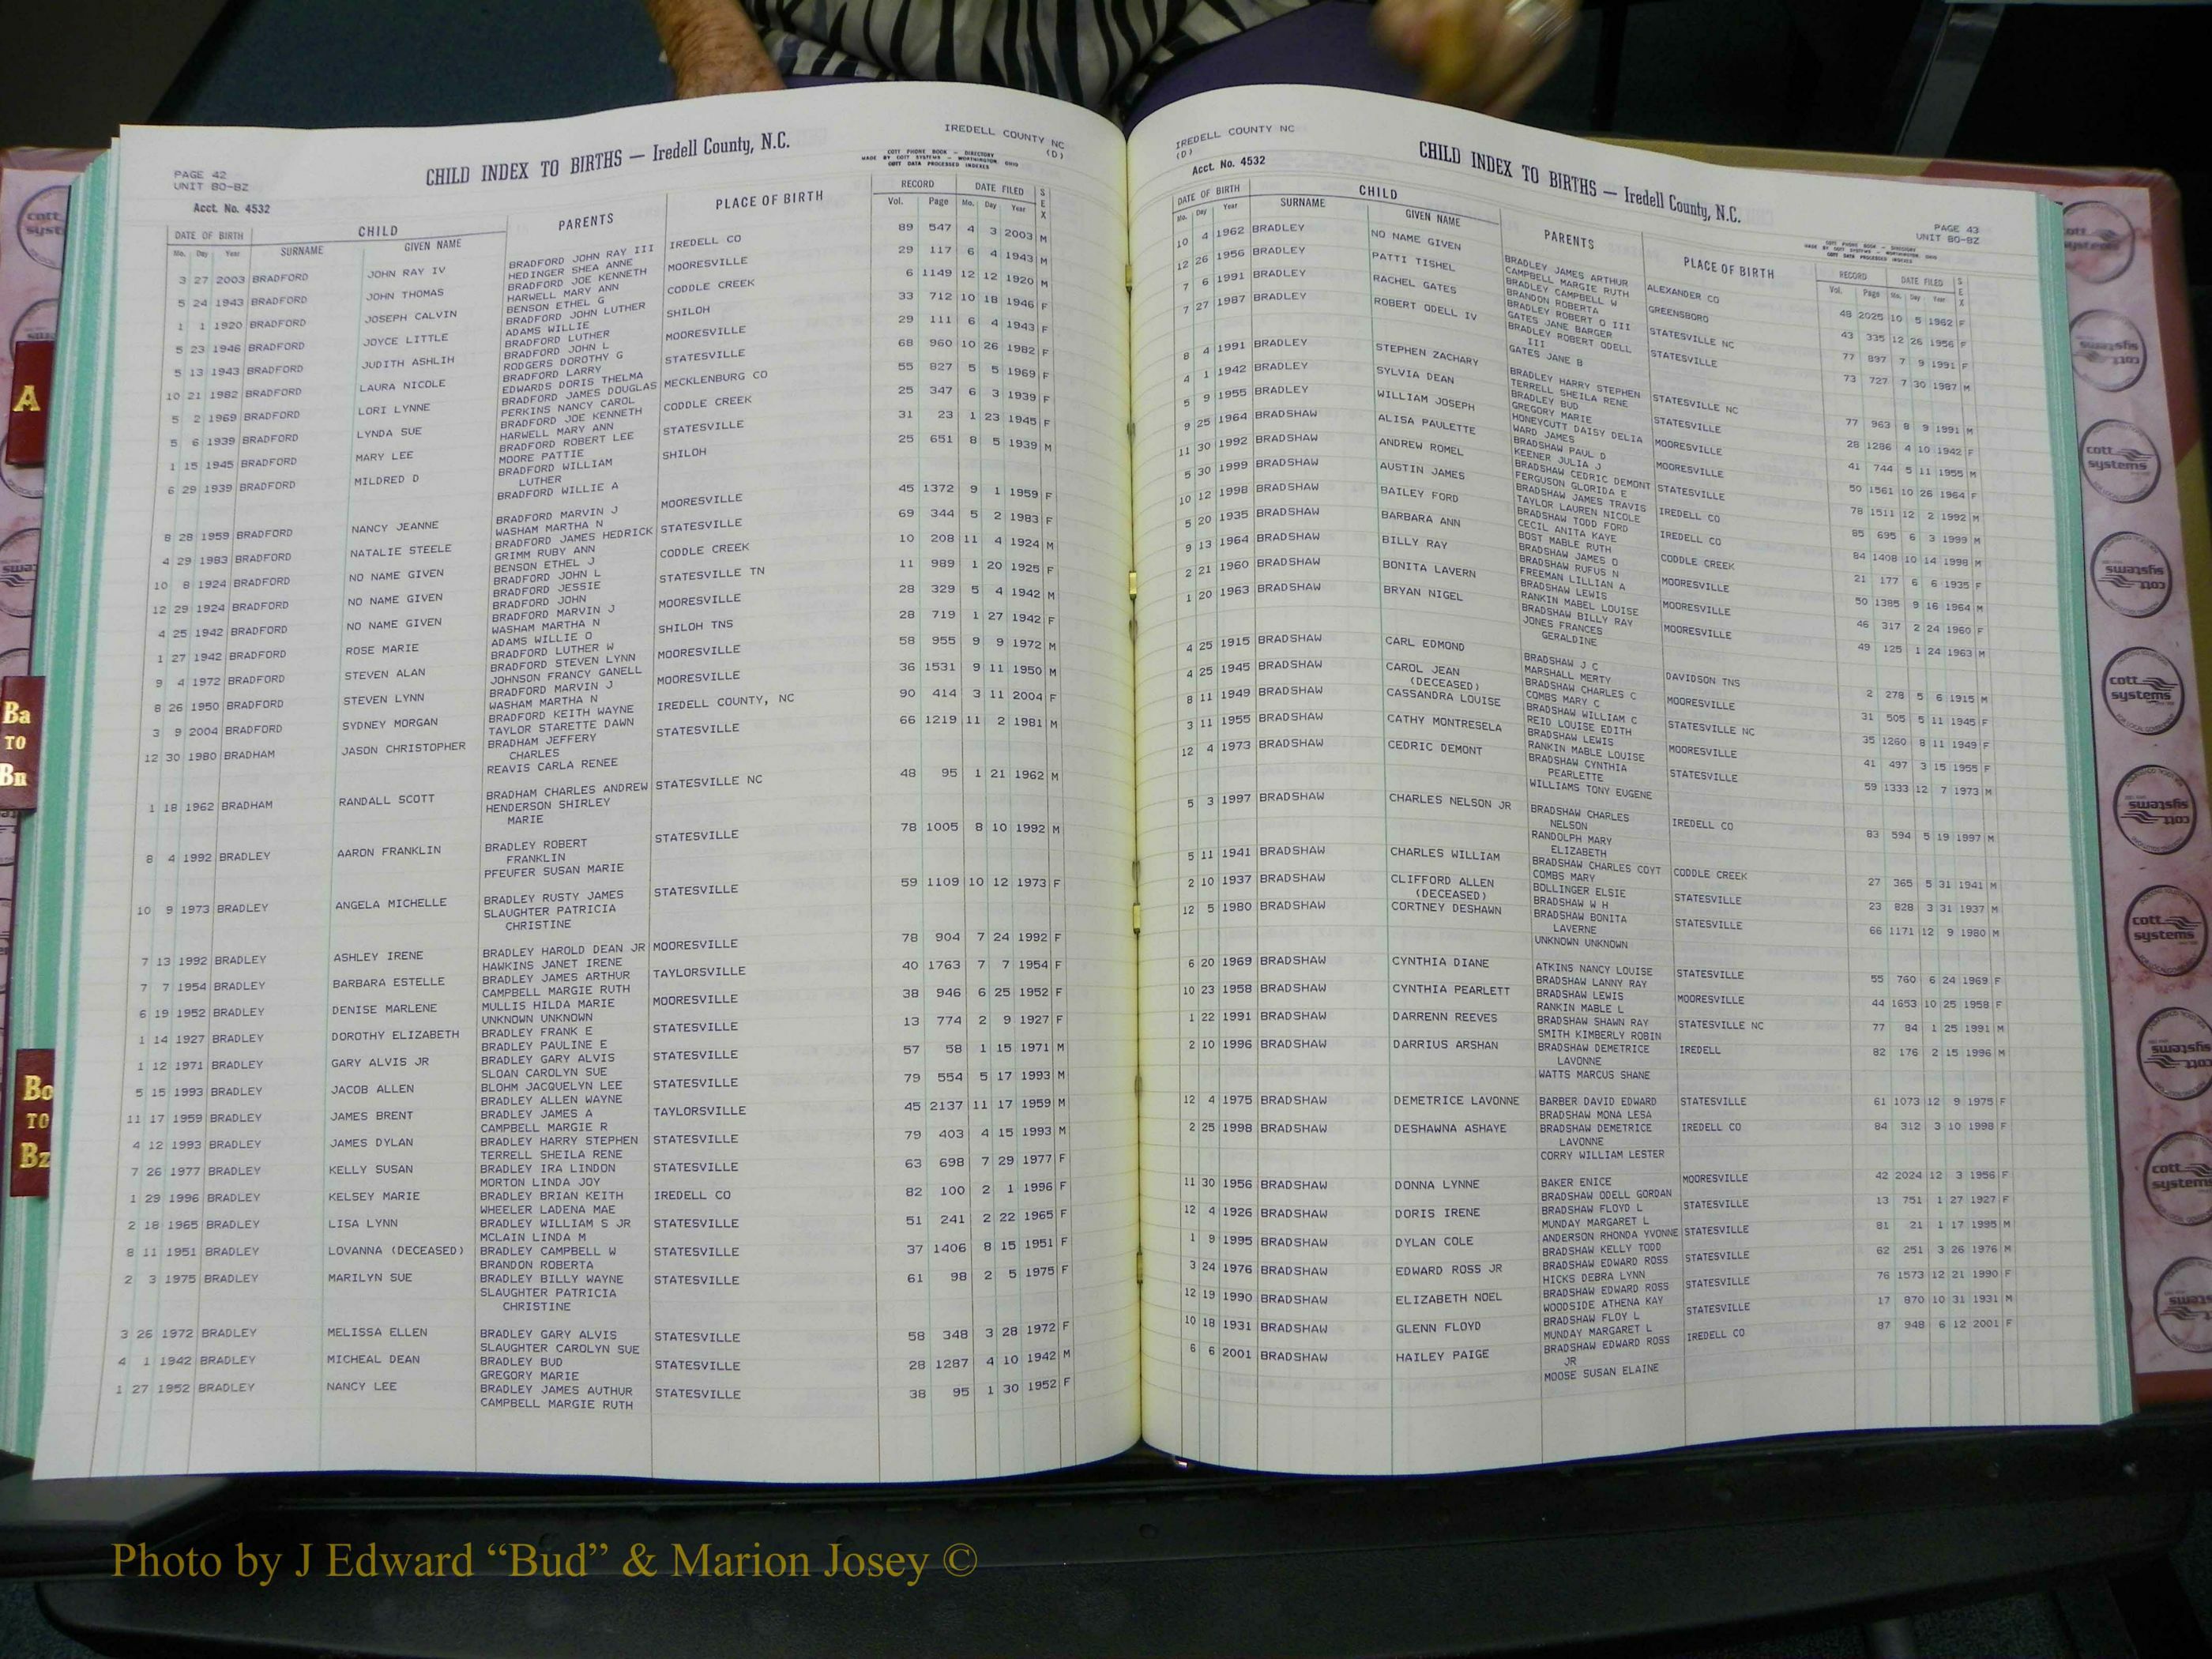 IREDELL COUNTY NC
(D)
CHILD INDEX TO BIRTHS — Iredell County, N.C.
COTT PHONE BOOK — DIRECTORY
MADE BY COTT SYSTEMS — WORTHINGTON, OHIO
COTT DATA PROCESSED INDEXES
PAGE 42
UNIT BO-BZ
Acct. No. 4532
DATE OF BIRTH CHILD PARENTS PLACE OF BIRTH RECORD DATE FILED SEX
Mo. Day Year SURNAME GIVEN NAME Vol. Page Mo. Day Year
3 27 2003 BRADFORD JOHN RAY IV BRADFORD JOHN RAY III IREDELL CO 89 547 4 3 2003 M
HEDINGER SHEA ANNE
5 24 1943 BRADFORD JOHN THOMAS BRADFORD JOE KENNETH MOORESVILLE 29 117 6 4 1943 M
HARWELL MARY ANN
1 1 1920 BRADFORD JOSEPH CALVIN BENSON ETHEL G CODDLE CREEK 6 1149 12 12 1920 M
BRADFORD JOHN LUTHER
5 23 1946 BRADFORD JOYCE LITTLE ADAMS WILLIE SHILOH 33 712 10 18 1946 F
BRADFORD LUTHER
5 13 1943 BRADFORD JUDITH ASHLIH BRADFORD JOHN L MOORESVILLE 29 111 6 4 1943 F
RODGERS DOROTHY G
10 21 1982 BRADFORD LAURA NICOLE BRADFORD LARRY STATESVILLE 68 960 10 26 1982 F
EDWARDS DORIS THELMA
5 2 1969 BRADFORD LORI LYNNE BRADFORD JAMES DOUGLAS MECKLENBURG CO 55 827 5 5 1969 F
PERKINS NANCY CAROL
5 6 1939 BRADFORD LYNDA SUE BRADFORD JOE KENNETH CODDLE CREEK 25 347 6 3 1939 F
HARWELL MARY ANN
1 15 1945 BRADFORD MARY LEE BRADFORD ROBERT LEE STATESVILLE 31 23 1 23 1945 F
MOORE PATTIE
6 29 1939 BRADFORD MILDRED D BRADFORD WILLIAM SHILOH 25 651 8 5 1939 M
LUTHER
BRADFORD WILLIE A
8 28 1959 BRADFORD NANCY JEANNE BRADFORD MARVIN J MOORESVILLE 45 1372 9 1 1959 F
WASHAM MARTHA N
4 29 1983 BRADFORD NATALIE STEELE BRADFORD JAMES HEDRICK STATESVILLE 69 344 5 2 1983 F
GRIMM RUBY ANN
10 8 1924 BRADFORD NO NAME GIVEN BENSON ETHEL J CODDLE CREEK 10 208 11 4 1924 M
BRADFORD JOHN L
12 29 1924 BRADFORD NO NAME GIVEN BRADFORD JESSIE STATESVILLE TN 11 989 1 20 1925 F
BRADFORD JOHN
4 25 1942 BRADFORD NO NAME GIVEN BRADFORD MARVIN J MOORESVILLE 28 329 5 4 1942 M
WASHAM MARTHA N
1 27 1942 BRADFORD ROSE MARIE ADAMS WILLIE O SHILOH TNS 28 719 1 27 1942 F
BRADFORD LUTHER W
9 4 1972 BRADFORD STEVEN ALAN BRADFORD STEVEN LYNN MOORESVILLE 58 955 9 9 1972 M
JOHNSON FRANCY GANELL
8 26 1950 BRADFORD STEVEN LYNN BRADFORD MARVIN J MOORESVILLE 36 1531 9 11 1950 M
WASHAM MARTHA N
3 9 2004 BRADFORD SYDNEY MORGAN BRADFORD KEITH WAYNE IREDELL COUNTY, NC 90 414 3 11 2004 F
TAYLOR STARETTE DAWN
12 30 1980 BRADHAM JASON CHRISTOPHER BRADHAM JEFFERY STATESVILLE 66 1219 11 2 1981 M
CHARLES
REAVIS CARLA RENEE
1 18 1962 BRADHAM RANDALL SCOTT BRADHAM CHARLES ANDREW STATESVILLE NC 48 95 1 21 1962 M
HENDERSON SHIRLEY
MARIE
8 4 1992 BRADLEY AARON FRANKLIN BRADLEY ROBERT STATESVILLE 78 1005 8 10 1992 M
FRANKLIN
PFEUFER SUSAN MARIE
10 9 1973 BRADLEY ANGELA MICHELLE BRADLEY RUSTY JAMES STATESVILLE 59 1109 10 12 1973 F
SLAUGHTER PATRICIA
CHRISTINE
7 13 1992 BRADLEY ASHLEY IRENE BRADLEY HAROLD DEAN JR MOORESVILLE 78 904 7 24 1992 F
HAWKINS JANET IRENE
7 7 1954 BRADLEY BARBARA ESTELLE BRADLEY JAMES ARTHUR TAYLORSVILLE 40 1763 7 7 1954 F
CAMPBELL MARGIE RUTH
6 19 1952 BRADLEY DENISE MARLENE MULLIS HILDA MARIE MOORESVILLE 38 946 6 25 1952 F
UNKNOWN UNKNOWN
1 14 1927 BRADLEY DOROTHY ELIZABETH BRADLEY FRANK E STATESVILLE 13 774 2 9 1927 F
BRADLEY PAULINE E
1 12 1971 BRADLEY GARY ALVIS JR BRADLEY GARY ALVIS STATESVILLE 57 58 1 15 1971 M
SLOAN CAROLYN SUE
5 15 1993 BRADLEY JACOB ALLEN BLOHM JACQUELYN LEE STATESVILLE 79 554 5 17 1993 M
BRADLEY ALLEN WAYNE
11 17 1959 BRADLEY JAMES BRENT BRADLEY JAMES A TAYLORSVILLE 45 2137 11 17 1959 M
CAMPBELL MARGIE R
4 12 1993 BRADLEY JAMES DYLAN BRADLEY HARRY STEPHEN STATESVILLE 79 403 4 15 1993 M
TERRELL SHEILA RENE
7 26 1977 BRADLEY KELLY SUSAN BRADLEY IRA LINDON STATESVILLE 63 698 7 29 1977 F
MORTON LINDA JOY
1 29 1996 BRADLEY KELSEY MARIE BRADLEY BRIAN KEITH IREDELL CO 82 100 2 1 1996 F
WHEELER LADENA MAE
2 18 1965 BRADLEY LISA LYNN BRADLEY WILLIAM S JR STATESVILLE 51 241 2 22 1965 F
MCLAIN LINDA M
8 11 1951 BRADLEY LOVANNA (DECEASED) BRADLEY CAMPBELL W STATESVILLE 37 1406 8 15 1951 F
BRANDON ROBERTA
2 3 1975 BRADLEY MARILYN SUE BRADLEY BILLY WAYNE STATESVILLE 61 98 2 5 1975 F
SLAUGHTER PATRICIA
CHRISTINE
3 26 1972 BRADLEY MELISSA ELLEN BRADLEY GARY ALVIS STATESVILLE 58 348 3 28 1972 F
SLAUGHTER CAROLYN SUE
4 1 1942 BRADLEY MICHEAL DEAN BRADLEY BUD STATESVILLE 28 1287 4 10 1942 M
GREGORY MARIE
1 27 1952 BRADLEY NANCY LEE BRADLEY JAMES AUTHUR STATESVILLE 38 95 1 30 1952 F
CAMPBELL MARGIE RUTH
IREDELL COUNTY NC
(D)
Acct. No. 4532
CHILD INDEX TO BIRTHS — Iredell County, N.C.
PAGE 43
UNIT BO-BZ
COTT PHONE BOOK — DIRECTORY
MADE BY COTT SYSTEMS — WORTHINGTON, OHIO
COTT DATA PROCESSED INDEXES
DATE OF BIRTH CHILD PARENTS PLACE OF BIRTH RECORD DATE FILED SEX
Mo. Day Year SURNAME GIVEN NAME Vol. Page Mo. Day Year
10 4 1962 BRADLEY NO NAME GIVEN BRADLEY JAMES ARTHUR ALEXANDER CO 48 2025 10 5 1962 F
CAMPBELL MARGIE RUTH
12 26 1956 BRADLEY PATTI TISHEL BRADLEY CAMPBELL W GREENSBORO 43 335 12 26 1956 F
BRANDON ROBERTA
7 6 1991 BRADLEY RACHEL GATES BRADLEY ROBERT O III STATESVILLE NC 77 897 7 9 1991 F
GATES JANE BARGER
7 27 1987 BRADLEY ROBERT ODELL IV BRADLEY ROBERT ODELL STATESVILLE 73 727 7 30 1987 M
III
GATES JANE B
8 4 1991 BRADLEY STEPHEN ZACHARY BRADLEY HARRY STEPHEN STATESVILLE NC 77 963 8 9 1991 M
TERRELL SHEILA RENE
4 1 1942 BRADLEY SYLVIA DEAN BRADLEY BUD STATESVILLE 28 1286 4 10 1942 F
GREGORY MARIE
5 9 1955 BRADLEY WILLIAM JOSEPH HONEYCUTT DAISY DELIA MOORESVILLE 41 744 5 11 1955 M
WARD JAMES
9 25 1964 BRADSHAW ALISA PAULETTE BRADSHAW PAUL D MOORESVILLE 50 1561 10 26 1964 F
KEENER JULIA J
11 30 1992 BRADSHAW ANDREW ROMEL BRADSHAW CEDRIC DEMONT STATESVILLE 78 1511 12 2 1992 M
FERGUSON GLORIDA E
5 30 1999 BRADSHAW AUSTIN JAMES BRADSHAW JAMES TRAVIS IREDELL CO 85 695 6 3 1999 M
TAYLOR LAUREN NICOLE
10 12 1998 BRADSHAW BAILEY FORD BRADSHAW TODD FORD IREDELL CO 84 1408 10 14 1998 M
CECIL ANITA KAYE
5 20 1935 BRADSHAW BARBARA ANN BOST MABLE RUTH CODDLE CREEK 21 177 6 6 1935 F
BRADSHAW JAMES O
9 13 1964 BRADSHAW BILLY RAY BRADSHAW RUFUS N MOORESVILLE 50 1385 9 16 1964 M
FREEMAN LILLIAN A
2 21 1960 BRADSHAW BONITA LAVERN BRADSHAW LEWIS MOORESVILLE 46 317 2 24 1960 F
RANKIN MABEL LOUISE
1 20 1963 BRADSHAW BRYAN NIGEL BRADSHAW BILLY RAY MOORESVILLE 49 125 1 24 1963 M
JONES FRANCES
GERALDINE
4 25 1915 BRADSHAW CARL EDMOND BRADSHAW J C DAVIDSON TNS 2 278 5 6 1915 M
MARSHALL MERTY
4 25 1945 BRADSHAW CAROL JEAN BRADSHAW CHARLES C MOORESVILLE 31 505 5 11 1945 F
(DECEASED) COMBS MARY C
8 11 1949 BRADSHAW CASSANDRA LOUISE BRADSHAW WILLIAM C STATESVILLE NC 35 1260 8 11 1949 F
REID LOUISE EDITH
3 11 1955 BRADSHAW CATHY MONTRESELA BRADSHAW LEWIS MOORESVILLE 41 497 3 15 1955 F
RANKIN MABLE LOUISE
12 4 1973 BRADSHAW CEDRIC DEMONT BRADSHAW CYNTHIA STATESVILLE 59 1333 12 7 1973 M
PEARLETTE
WILLIAMS TONY EUGENE
5 3 1997 BRADSHAW CHARLES NELSON JR BRADSHAW CHARLES IREDELL CO 83 594 5 19 1997 M
NELSON
RANDOLPH MARY
ELIZABETH
5 11 1941 BRADSHAW CHARLES WILLIAM BRADSHAW CHARLES COYT CODDLE CREEK 27 365 5 31 1941 M
COMBS MARY
2 10 1937 BRADSHAW CLIFFORD ALLEN BOLLINGER ELSIE STATESVILLE 23 828 3 31 1937 M
(DECEASED) BRADSHAW W H
12 5 1980 BRADSHAW CORTNEY DESHAWN BRADSHAW BONITA STATESVILLE 66 1171 12 9 1980 M
LAVERNE
UNKNOWN UNKNOWN
6 20 1969 BRADSHAW CYNTHIA DIANE ATKINS NANCY LOUISE STATESVILLE 55 760 6 24 1969 F
BRADSHAW LANNY RAY
10 23 1958 BRADSHAW CYNTHIA PEARLETT BRADSHAW LEWIS MOORESVILLE 44 1653 10 25 1958 F
RANKIN MABLE L
1 22 1991 BRADSHAW DARRENN REEVES BRADSHAW SHAWN RAY STATESVILLE NC 77 84 1 25 1991 M
SMITH KIMBERLY ROBIN
2 10 1996 BRADSHAW DARRIUS ARSHAN BRADSHAW DEMETRICE IREDELL 82 176 2 15 1996 M
LAVONNE
WATTS MARCUS SHANE
12 4 1975 BRADSHAW DEMETRICE LAVONNE BARBER DAVID EDWARD STATESVILLE 61 1073 12 9 1975 F
BRADSHAW MONA LESA
2 25 1998 BRADSHAW DESHAWNA ASHAYE BRADSHAW DEMETRICE IREDELL CO 84 312 3 10 1998 F
LAVONNE
CORRY WILLIAM LESTER
11 30 1956 BRADSHAW DONNA LYNNE BAKER ENICE MOORESVILLE 42 2024 12 3 1956 F
BRADSHAW ODELL GORDAN
12 4 1926 BRADSHAW DORIS IRENE BRADSHAW FLOYD L STATESVILLE 13 751 1 27 1927 F
MUNDAY MARGARET L
1 9 1995 BRADSHAW DYLAN COLE ANDERSON RHONDA YVONNE STATESVILLE 81 21 1 17 1995 M
BRADSHAW KELLY TODD
3 24 1976 BRADSHAW EDWARD ROSS JR BRADSHAW EDWARD ROSS STATESVILLE 62 251 3 26 1976 M
HICKS DEBRA LYNN
12 19 1990 BRADSHAW ELIZABETH NOEL BRADSHAW EDWARD ROSS STATESVILLE 76 1573 12 21 1990 F
WOODSIDE ATHENA KAY
10 18 1931 BRADSHAW GLENN FLOYD BRADSHAW FLOY L STATESVILLE 17 870 10 31 1931 M
MUNDAY MARGARET L
6 6 2001 BRADSHAW HAILEY PAIGE BRADSHAW EDWARD ROSS IREDELL CO 87 948 6 12 2001 F
JR
MOOSE SUSAN ELAINE
A
Ba
TO
Bn
Bo
TO
Bz
cott
systems
Photo by J Edward “Bud” & Marion Josey ©